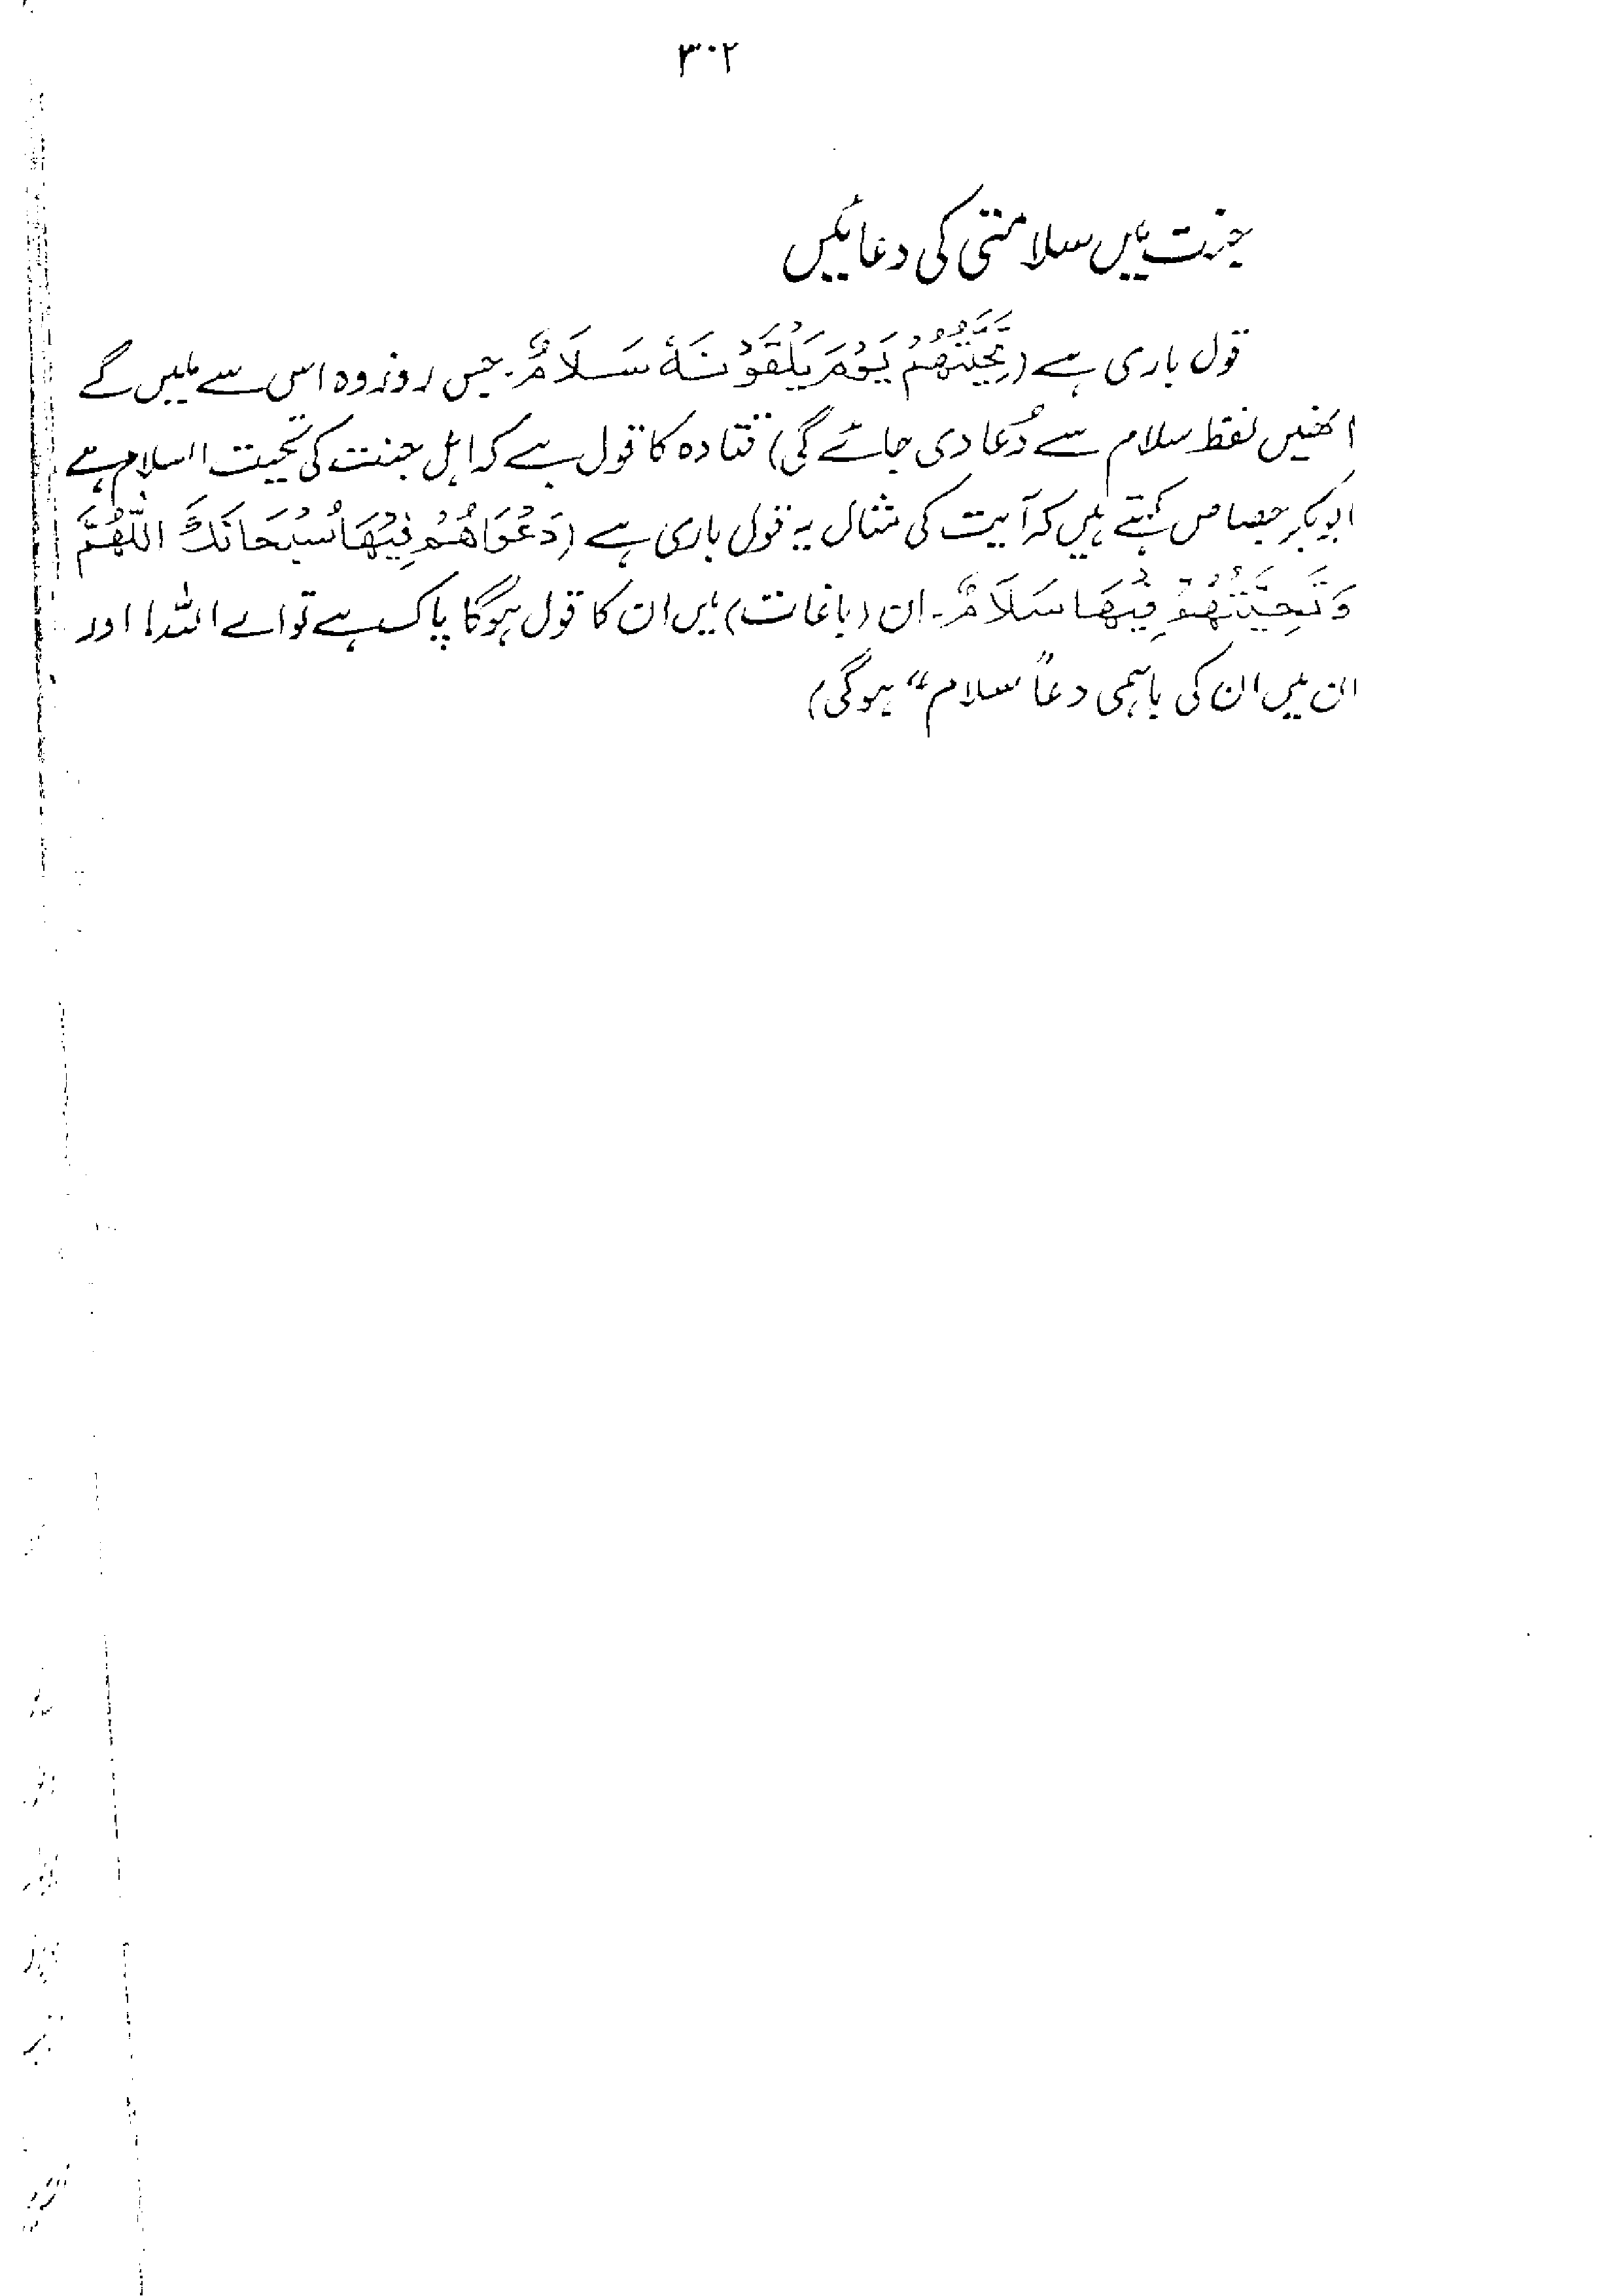 ۳۰۲
جنت میں سلامتی کی دعائیں
قول باری ہے (تَحِيَّتُهُمْ يَوْمَ يَلْقَوْنَهٗ سَلَامٌ۔ جس روز وہ اس سے ملیں گے
انھیں لفظ سلام سے دُعا دی جائے گی) قتادہ کا قول ہے کہ اہل جنت کی تحیت السلام ہے
ابوبکر جصاص کہتے ہیں کہ آیت کی مثال یہ قول باری ہے (دَعْوَاهُمْ فِيْهَا سُبْحَانَكَ اللّٰهُمَّ
وَتَحِيَّتُهُمْ فِيْهَا سَلَامٌ۔ ان (باغات) میں ان کا قول ہوگا پاک ہے تو اے اللہ! اور
ان میں ان کی باہمی دعا "سلام" ہوگی)